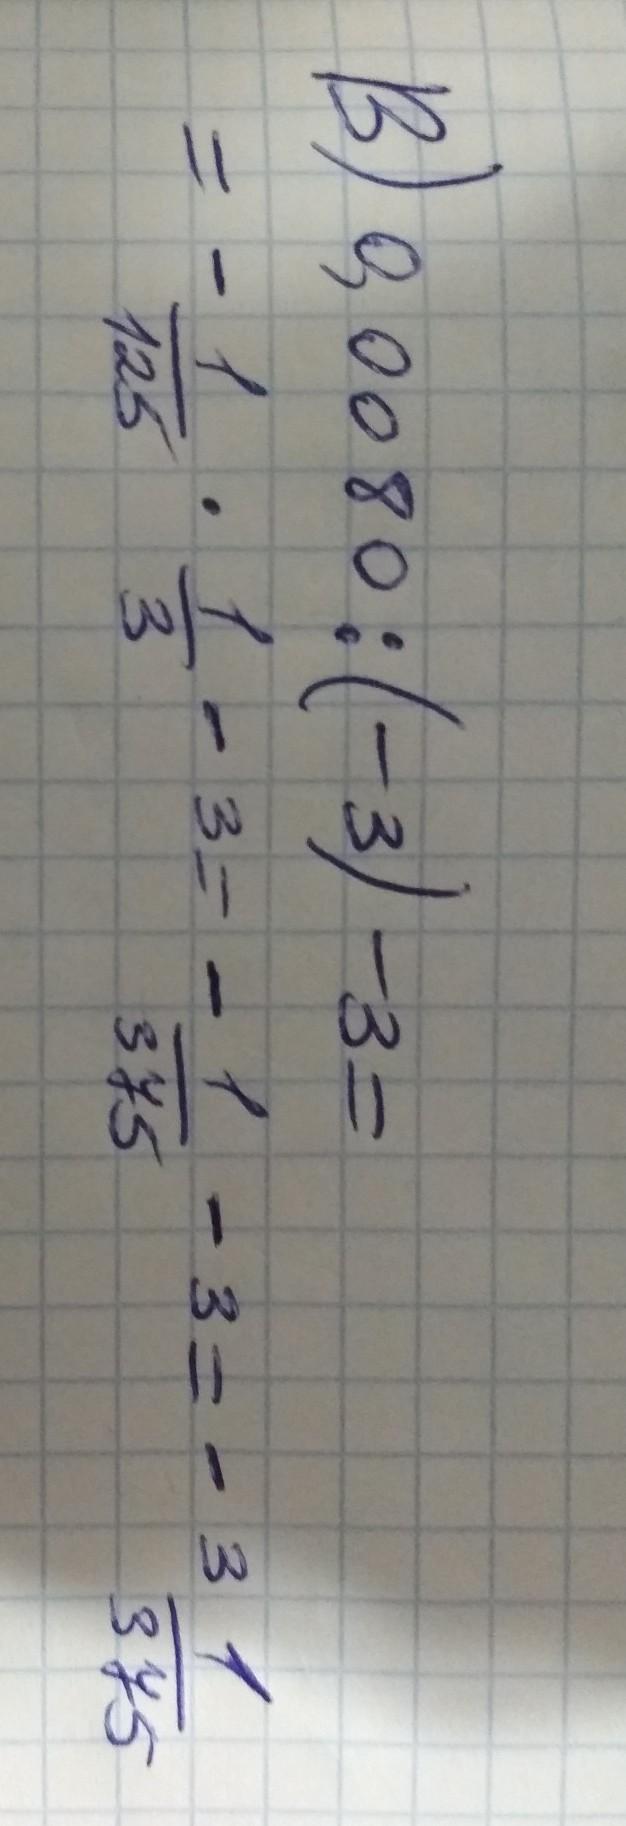 В) 0,0080:(-3)-3=
= - 1/125 · 1/3 - 3 = - 1/375 - 3 = - 3 1/375